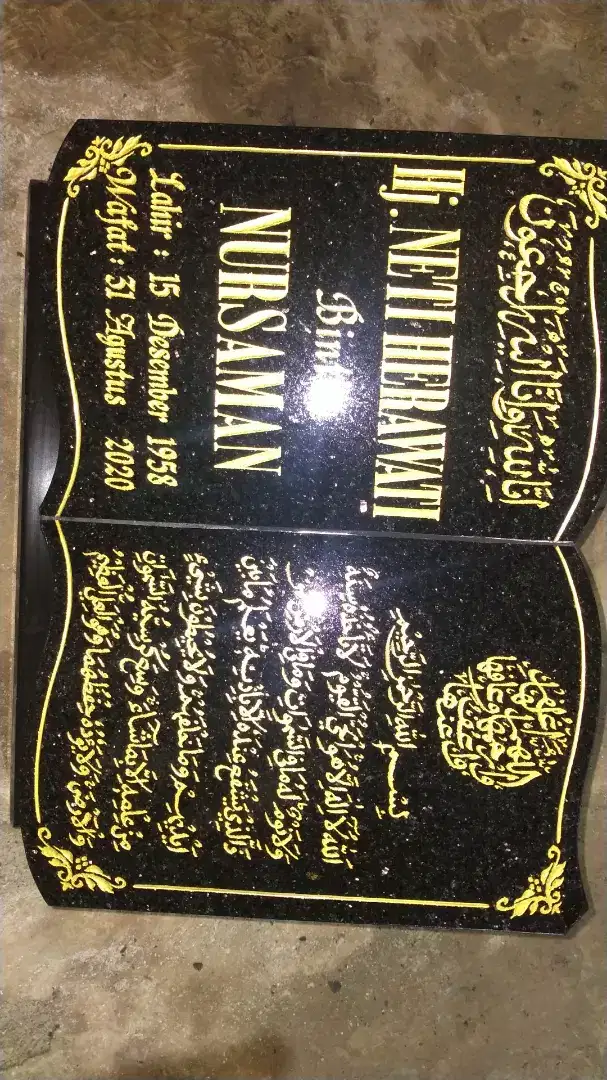 إنا لله وإنا إليه راجعون
Hj. NETI HERAWATI
Binti
NURSAMAN
Lahir : 15 Desember 1958
Wafat : 31 Agustus 2020
بسم الله الرحمن الرحيم
الله لا إله إلا هو الحي القيوم لا تأخذه سنة
ولا نوم له ما في السموات وما في الأرض من
ذا الذي يشفع عنده إلا بإذنه يعلم ما بين
أيديهم وما خلفهم ولا يحيطون بشيء
من علمه إلا بما شاء وسع كرسيه السموت
والأرض ولا يئوده حفظهما وهو العلي العظيم